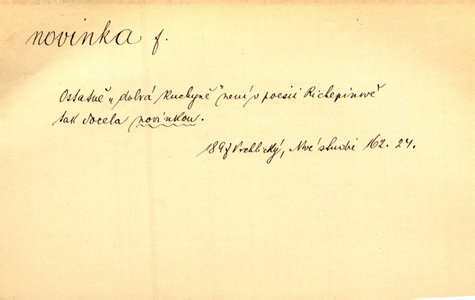 novinka f.
Ostatně „dobrá kuchyně“ není v poesii Richepinově
tak docela novinkou.
1897 Vrchlický, Nové studie 162. 24.